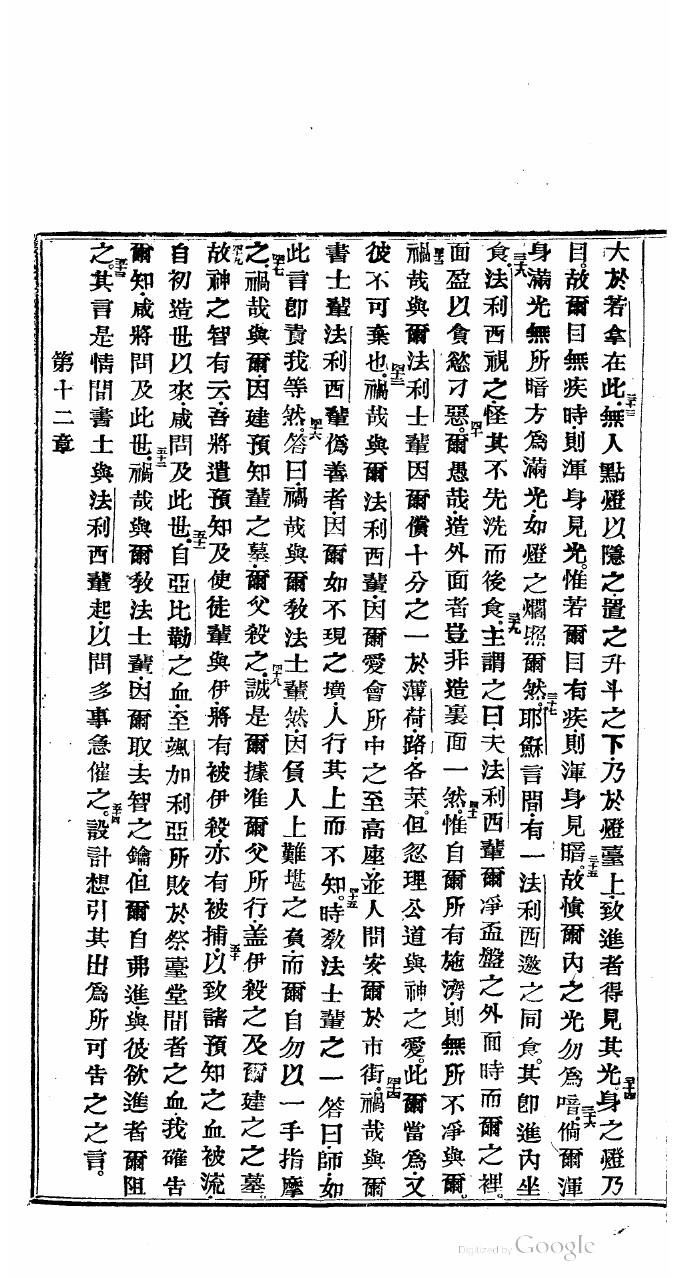 大於若拿在此無人點燈以隱之置之升斗之下乃於燈臺上致進者得見其光身之燈乃
目故爾目無疾時則渾身見光惟若爾目有疾則渾身見暗故慎爾內之光勿為暗倘爾渾
身滿光無所暗方為滿光如燈之爛照爾然耶穌言間有一法利西邀之同食其即進內坐
食法利西視之怪其不先洗而後食主謂之曰夫法利西輩爾凈盃盤之外面時而爾之裡
面盈以貪慾刁惡爾愚哉造外面者豈非造裏面一然惟自爾所有施濟則無所不凈與爾
禍哉與爾法利士輩因爾償十分之一於薄荷路各菜但忽理公道與神之愛此爾當為又
彼不可棄也禍哉與爾法利西輩因爾愛會所中之至高座並人問安爾於市街禍哉與爾
書士輩法利西輩偽善者因爾如不現之墳人行其上而不知時教法士輩之一答曰師如
此言即責我等然答曰禍哉與爾教法士輩然因負人上難堪之負而爾自勿以一手指摩
之禍哉與爾因建預知輩之墓爾父殺之誠是爾據准爾父所行蓋伊殺之及爾建之之墓
故神之智有云吾將遣預知及使徒輩與伊將有被伊殺亦有被捕以致諸預知之血被流
自初造世以來咸問及此世自亞比勒之血至颯加利亞所敗於祭臺堂間者之血我確告
爾知咸將問及此世禍哉與爾教法士輩因爾取去智之鑰但爾自弗進與彼欲進者爾阻
之其言是情間書士與法利西輩起以問多事急催之設計想引其出為所可告之之言
第十二章
Digitized by Google